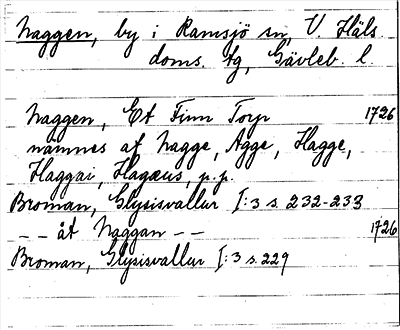 Naggen, by i Ramsjö sn, V. Häls.
doms. tg, Gävleb. l.
Naggen, Et Finn Torp 1726
nämnes af Nagge, Agge, Hagge,
Haggai, Hagæus, p.p.
Broman, Glysisvallur I:3 s. 232-233
-- åt Naggan -- 1726
Broman, Glysisvallur I:3 s. 229